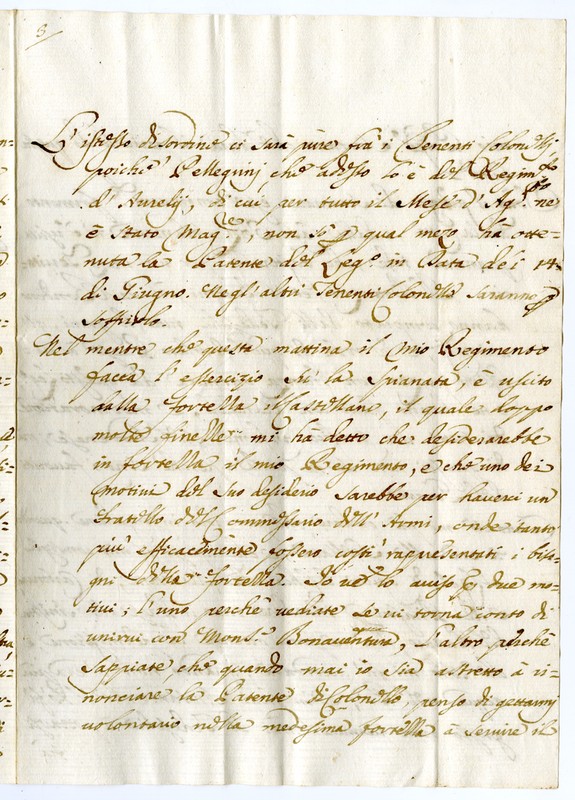 3
L'istesso disordine ci sarà pure frà i Tenenti Colonelli
poiche' Pellegrini che adesso lo è del Regim.to
d' Aurelij, di cui per tutto il Mese d' Ag.to ne
è stato Mag.re, non sò p qual mezo hà otte=
nuta la Patente del Leg.o in Data dei 14
di Giugno. Negl' altri Tenenti Colonelli saranno p
soffrirlo.
Nel mentre che questa mattina il mio Regimento
facea l' essercizio sù la Spianata, è uscito
dalla fortezza il Castellano, il quale doppo
molte finezze mi ha detto che desiderarebbe
in fortezza il mio Regimento, e che uno dei
motivi del suo desiderio sarebbe per haverci un
fratello del Commissario dell' Armi, onde tanto
più efficacemente fossero costì rapresentati i biso=
gni della fortezza. Io ve lo aviso p due mo=
tivi; l'uno perche vediate se vi torna conto di
unirvi con Mons.r Bonaventura, l'altro perchè
sappiate che quando mai io sia astretto à ri=
nonciare la Patente di Colonello, penso di gettarmi
volontario nella medesima fortezza à servire il